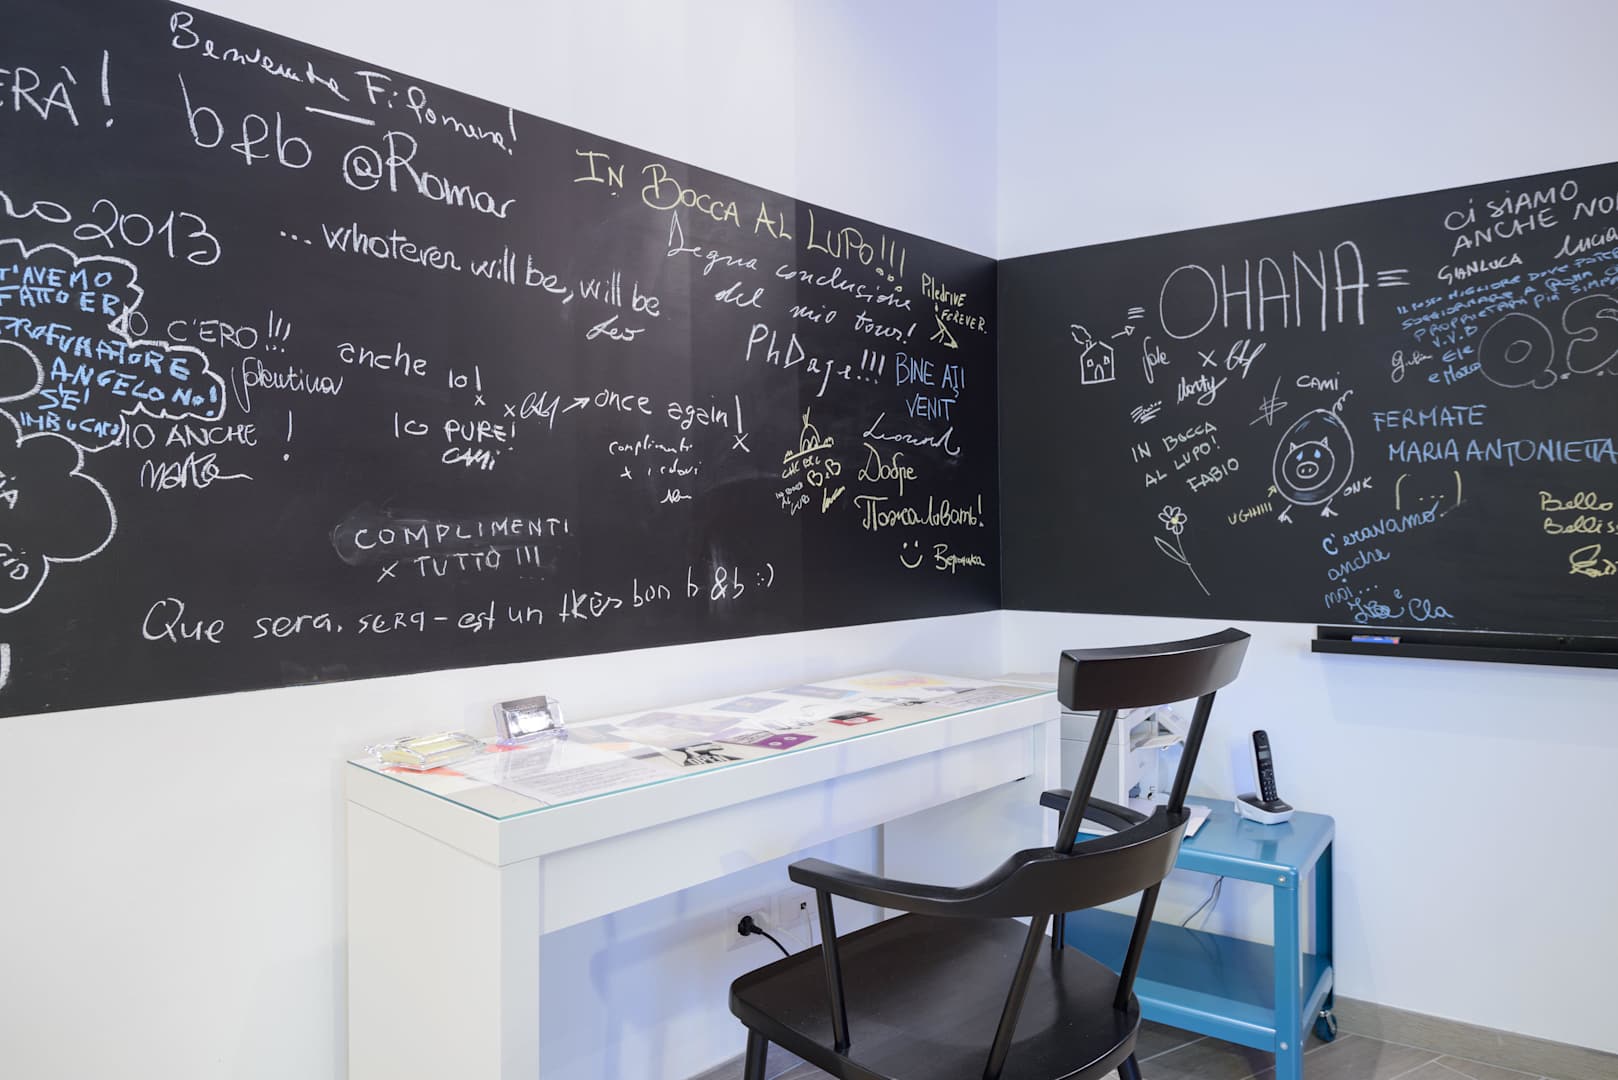 Benvenuta Filomena!
ERÀ!
b&b @Romar
2013
... whatever will be, will be
Leo
C'ERO!!!
Valentina
FATTO ER
PROFUMATORE
ANGELO NO!
SEI
IMBUCATO
IO ANCHE !
anche IO!
x
IO PURE!
CAMI
x → once again!
x
complimenti
x i colori
COMPLIMENTI
x TUTTO !!!
Que sera, sera - est un très bon b & b :)
IN BOCCA AL LUPO!!!
Degna conclusione
del mio tour!
PhDage!!!
Piledrive
FOREVER.
BINE AȚI
VENIT
B&B
Добре
Пожаловать!
Вероника
= OHANA =
x
IN BOCCA
AL LUPO!
FABIO
CAMI
UGINIII
ONK
CI SIAMO
ANCHE NOI
GIANLUCA Lucia
IL POSTO MIGLIORE DOVE POTER
SOGGIORNARE A ROMA CON
PROPRIETARI PIÙ SIMPA
V.V.B
Giulia Ele
e Marco
FERMATE
MARIA ANTONIETTA
(...)
c'eravamo
anche
noi...
e Cla
Bello
Belliss